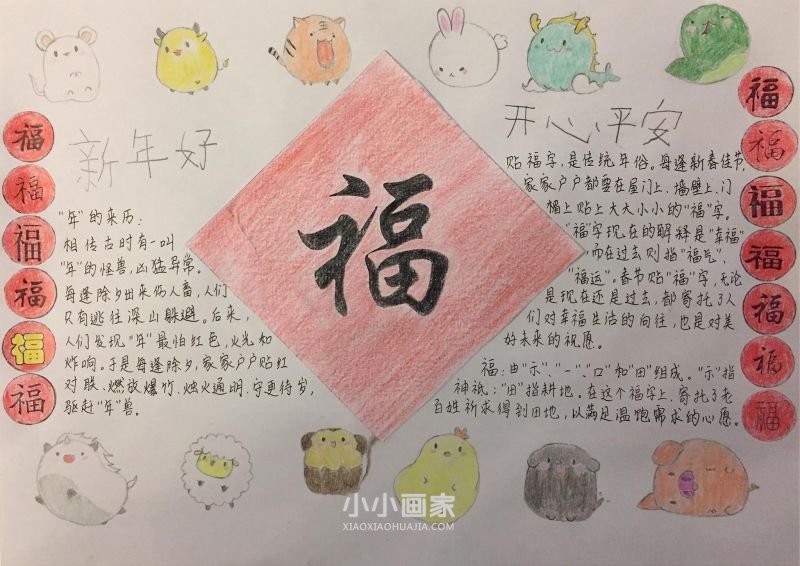 新年好
"年"的来历:
相传古时有一叫
"年"的怪兽,凶猛异常。
每逢除夕出来伤人畜,人们
只有逃往深山躲避。后来,
人们发现"年"最怕红色,火光和
炸响。于是每逢除夕,家家户户贴红
对联、燃放爆竹、烛火通明、守更待岁,
驱赶"年"兽。
福
福
福
福
福
福
福
开心平安
贴福字,是传统年俗。每逢新春佳节,
家家户户都要在屋门上、墙壁上、门
楣上贴上大大小小的"福"字。
"福"字现在的解释是"幸福"
,而在过去则指"福气"、
"福运"。春节贴"福"字,无论
是现在还是过去,都寄托了人
们对幸福生活的向往,也是对美
好未来的祝愿。
福:由"示"、"一"、"口"和"田"组成。"示"指
神祇;"田"指耕地。在这个福字上,寄托了老
百姓祈求得到田地,以满足温饱需求的心愿。
福
福
福
福
福
福
福
小小画家
XIAOXIAOHUAJIA.COM